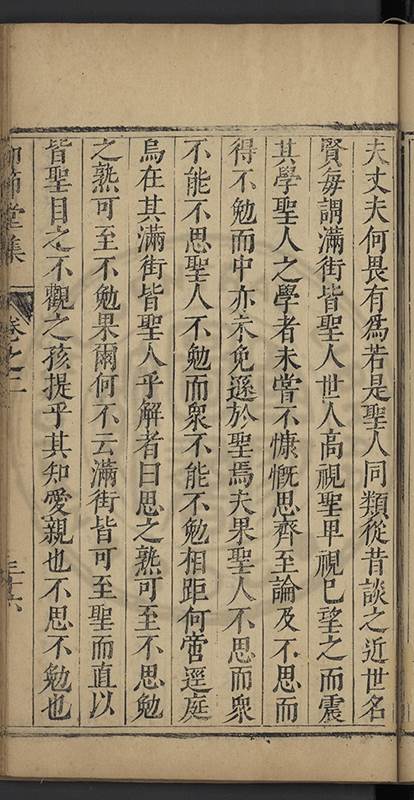 夫丈夫何畏有爲若是聖人同類從昔談之近世名
賢每謂滿街皆聖人世人高視聖卑視巳望之而震
其學聖人之學者未嘗不慷慨思齊至論及不思而
得不勉而中亦未免遜於聖焉夫果聖人不思而衆
不能不思聖人不勉而衆不能不勉相距何啻逕庭
烏在其滿街皆聖人乎解者曰思之熟可至不思勉
之熟可至不勉果爾何不云滿街皆可至聖而直以
皆聖目之不觀之孩提乎其知愛親也不思不勉也
堂集
卷之二
三十六